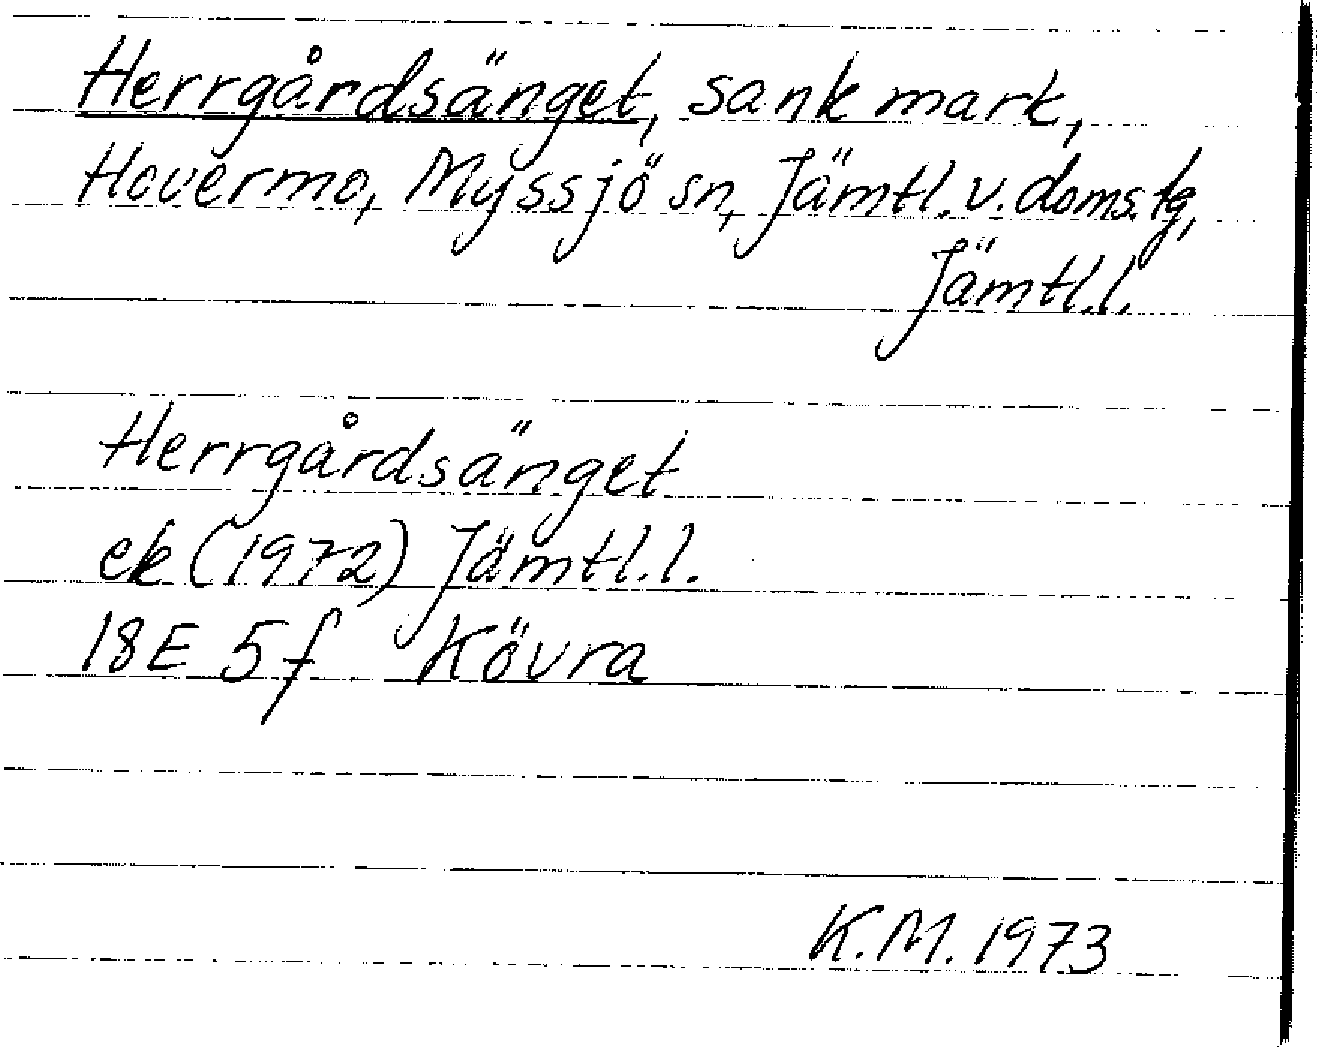 Herrgårdsänget, sank mark,
Hovermo, Myssjö sn, Jämtl. v. doms. lg,
Jämtl. l.
Herrgårdsänget
ek (1972) Jämtl. l.
18E 5f Kövra
K.M. 1973